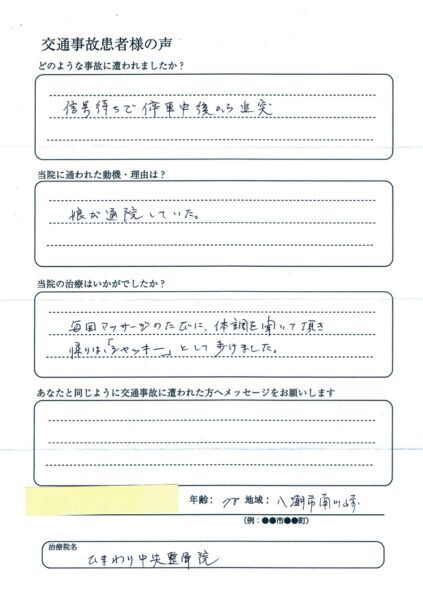 交通事故患者様の声
どのような事故に遭われましたか？
信号待ちで停車中後から追突
当院に通われた動機・理由は？
娘が通院していた。
当院の治療はいかがでしたか？
毎回マッサージのたびに、体調を聞いて頂き
帰りは、「シャッキー」として歩けました。
あなたと同じように交通事故に遭われた方へメッセージをお願いします
年齢： 地域： 八潮市南川崎
（例：●●市●●町）
治療院名
ひまわり中央整骨院